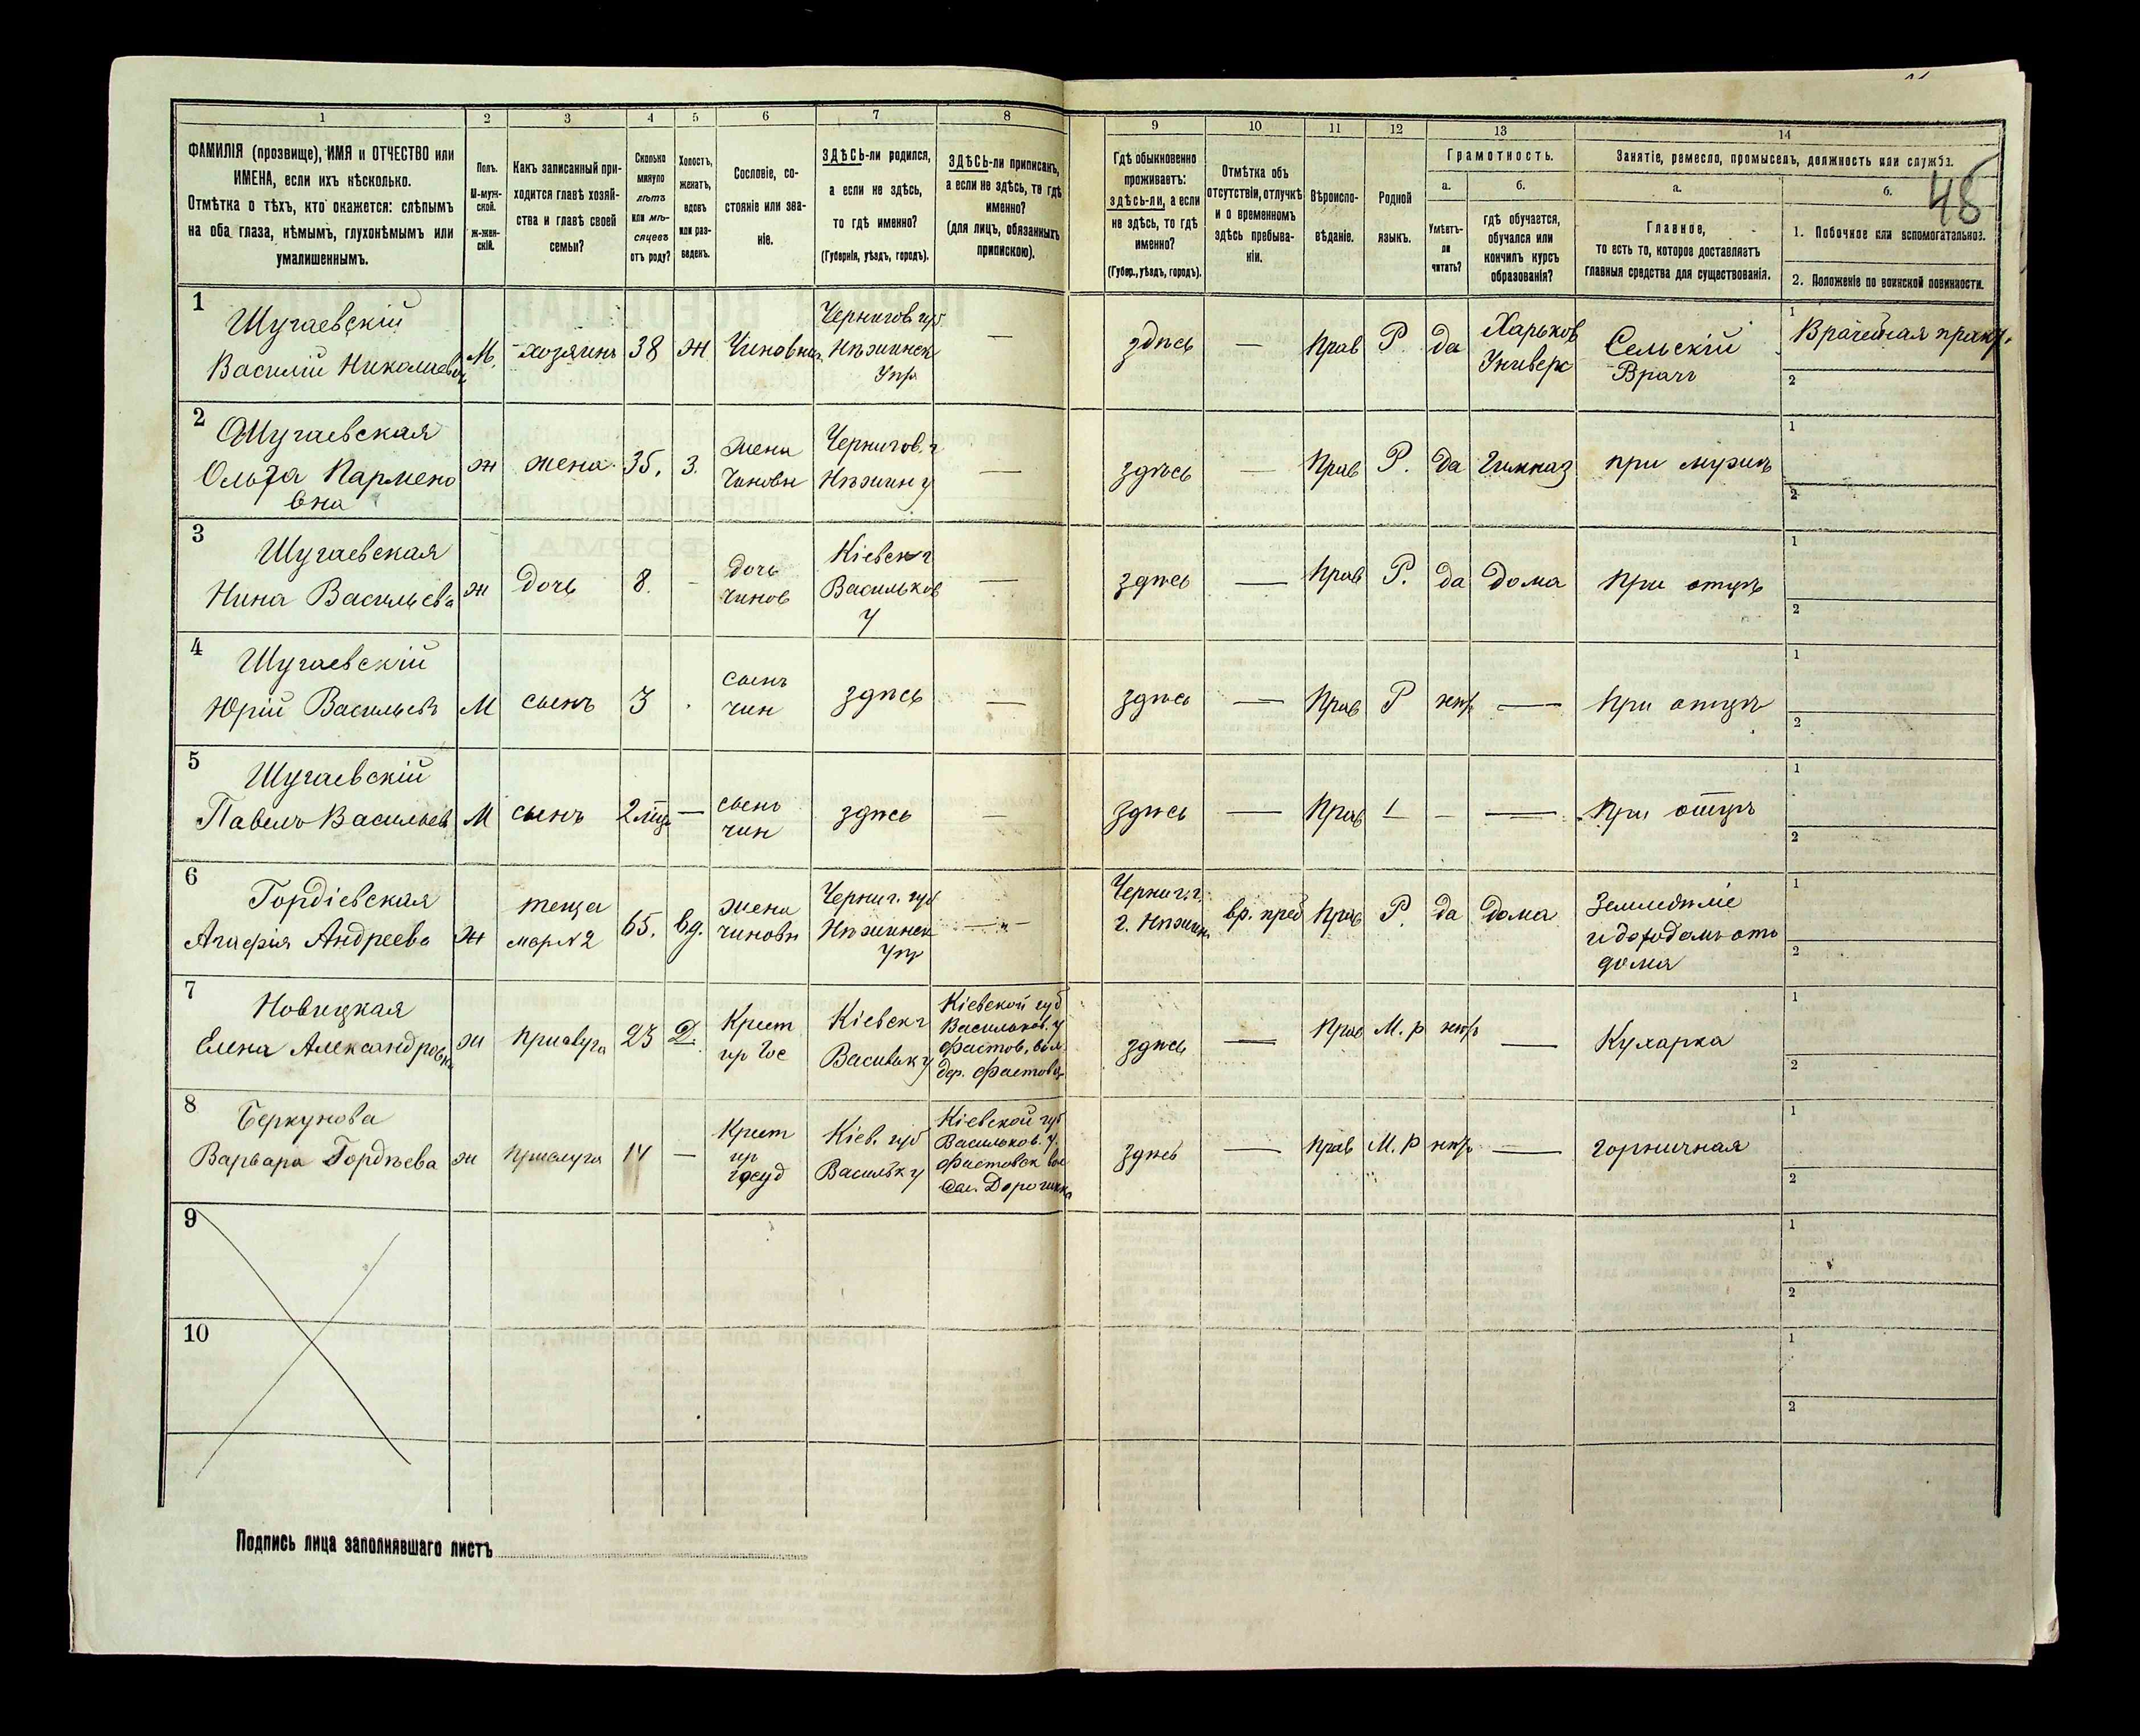 1
2
3
4
5
6
7
8
ФАМИЛІЯ (прозвище), ИМЯ и ОТЧЕСТВО или
ИМЕНА, если ихъ нѣсколько.
Отмѣтка о тѣхъ, кто окажется: слѣпымъ
на оба глаза, нѣмымъ, глухонѣмымъ или
умалишеннымъ.
Полъ.
М-муж-
ской.
ж-жен-
скій.
Какъ записанный при-
ходится главѣ хозяй-
ства и главѣ своей
семьи?
Сколько
минуло
лѣтъ
или мѣ-
сяцевъ
отъ роду?
Холостъ,
женатъ,
вдовъ
или раз-
веденъ.
Сословіе, со-
стояніе или зва-
ніе.
ЗДѢСЬ-ли родился,
а если не здѣсь,
то гдѣ именно?
(Губернія, уѣздъ, городъ).
ЗДѢСЬ-ли приписанъ,
а если не здѣсь, то гдѣ
именно?
(для лицъ, обязанныхъ
припискою).
9
10
11
12
13
14
Гдѣ обыкновенно
проживаетъ:
здѣсь-ли, а если
не здѣсь, то гдѣ
именно?
(Губер., уѣздъ, городъ).
Отмѣтка объ
отсутствіи, отлучкѣ
и о временномъ
здѣсь пребыва-
ніи.
Вѣроиспо-
вѣданіе.
Родной
языкъ.
Грамотность.
а.
б.
Умѣетъ-
ли
читать?
гдѣ обучается,
обучался или
кончилъ курсъ
образованія?
Занятіе, ремесло, промыселъ, должность или служба.
а.
б.
48
Главное,
то есть то, которое доставляетъ
главныя средства для существованія.
1. Побочное или вспомогательное.
2. Положеніе по воинской повинности.
1
Шугаевскій
Василій Николаевич
М.
хозяинъ
38
Ж
Чиновник
Чернигов губ
Нѣжинск
Уѣз
—
здѣсь
—
Прав
Р.
да
Харьков
Универс
Сельскій
Врачъ
1
Врачебная практ.
2
2
Шугаевская
Ольга Пармено
вна
ж
жена
35.
З.
жена
Чиновн
Чернигов. г
Нѣжин у
—
здѣсь
—
Прав
Р.
да
Гимназ
при мужѣ
1
2
3
Шугаевская
Нина Васильева
ж
дочь
8.
-
дочь
чинов
Кіевск г
Васильков
у
—
здѣсь
—
Прав
Р.
да
дома
при отцѣ
1
2
4
Шугаевскій
Юрій Васильевъ
М
сынъ
3
сынъ
чин
здѣсь
—
здѣсь
—
Прав
Р
нѣтъ
—
при отцѣ
1
2
5
Шугаевскій
Павелъ Васильев
М
сынъ
2 мѣс
—
сынъ
чин
здѣсь
—
здѣсь
—
Прав
–
—
при отцѣ
1
2
6
Гордіевская
Агафія Андреева
ж
теща
мар № 2
65.
вд.
жена
чиновн
Черниг. губ
Нѣжинск
Уѣз
— „ —
Черниг. г.
г. Нѣжин
вр. преб
Прав
Р.
да
дома
Земледѣліе
и доходомъ отъ
дома
1
2
7
Новицкая
Елена Александровна
ж
прислуга
23
Д.
Крест
Кіевск г
Васильк у
Кіевской губ
Васильков. у
Фастов. вол.
дер. Фастовец
здѣсь
—
Прав
М. р
нѣтъ
—
Кухарка
1
2
8
Беркунова
Варвара Гордѣева
ж
прислуга
14
—
Крест
госуд
Кіев. губ
Васильк у
Кіевской губ
Васильков. у.
Фастовск вол
Дорогинка
здѣсь
—
Прав
М. р
нѣтъ
—
горничная
1
2
9
1
2
10
1
2
Подпись лица заполнявшаго листъ